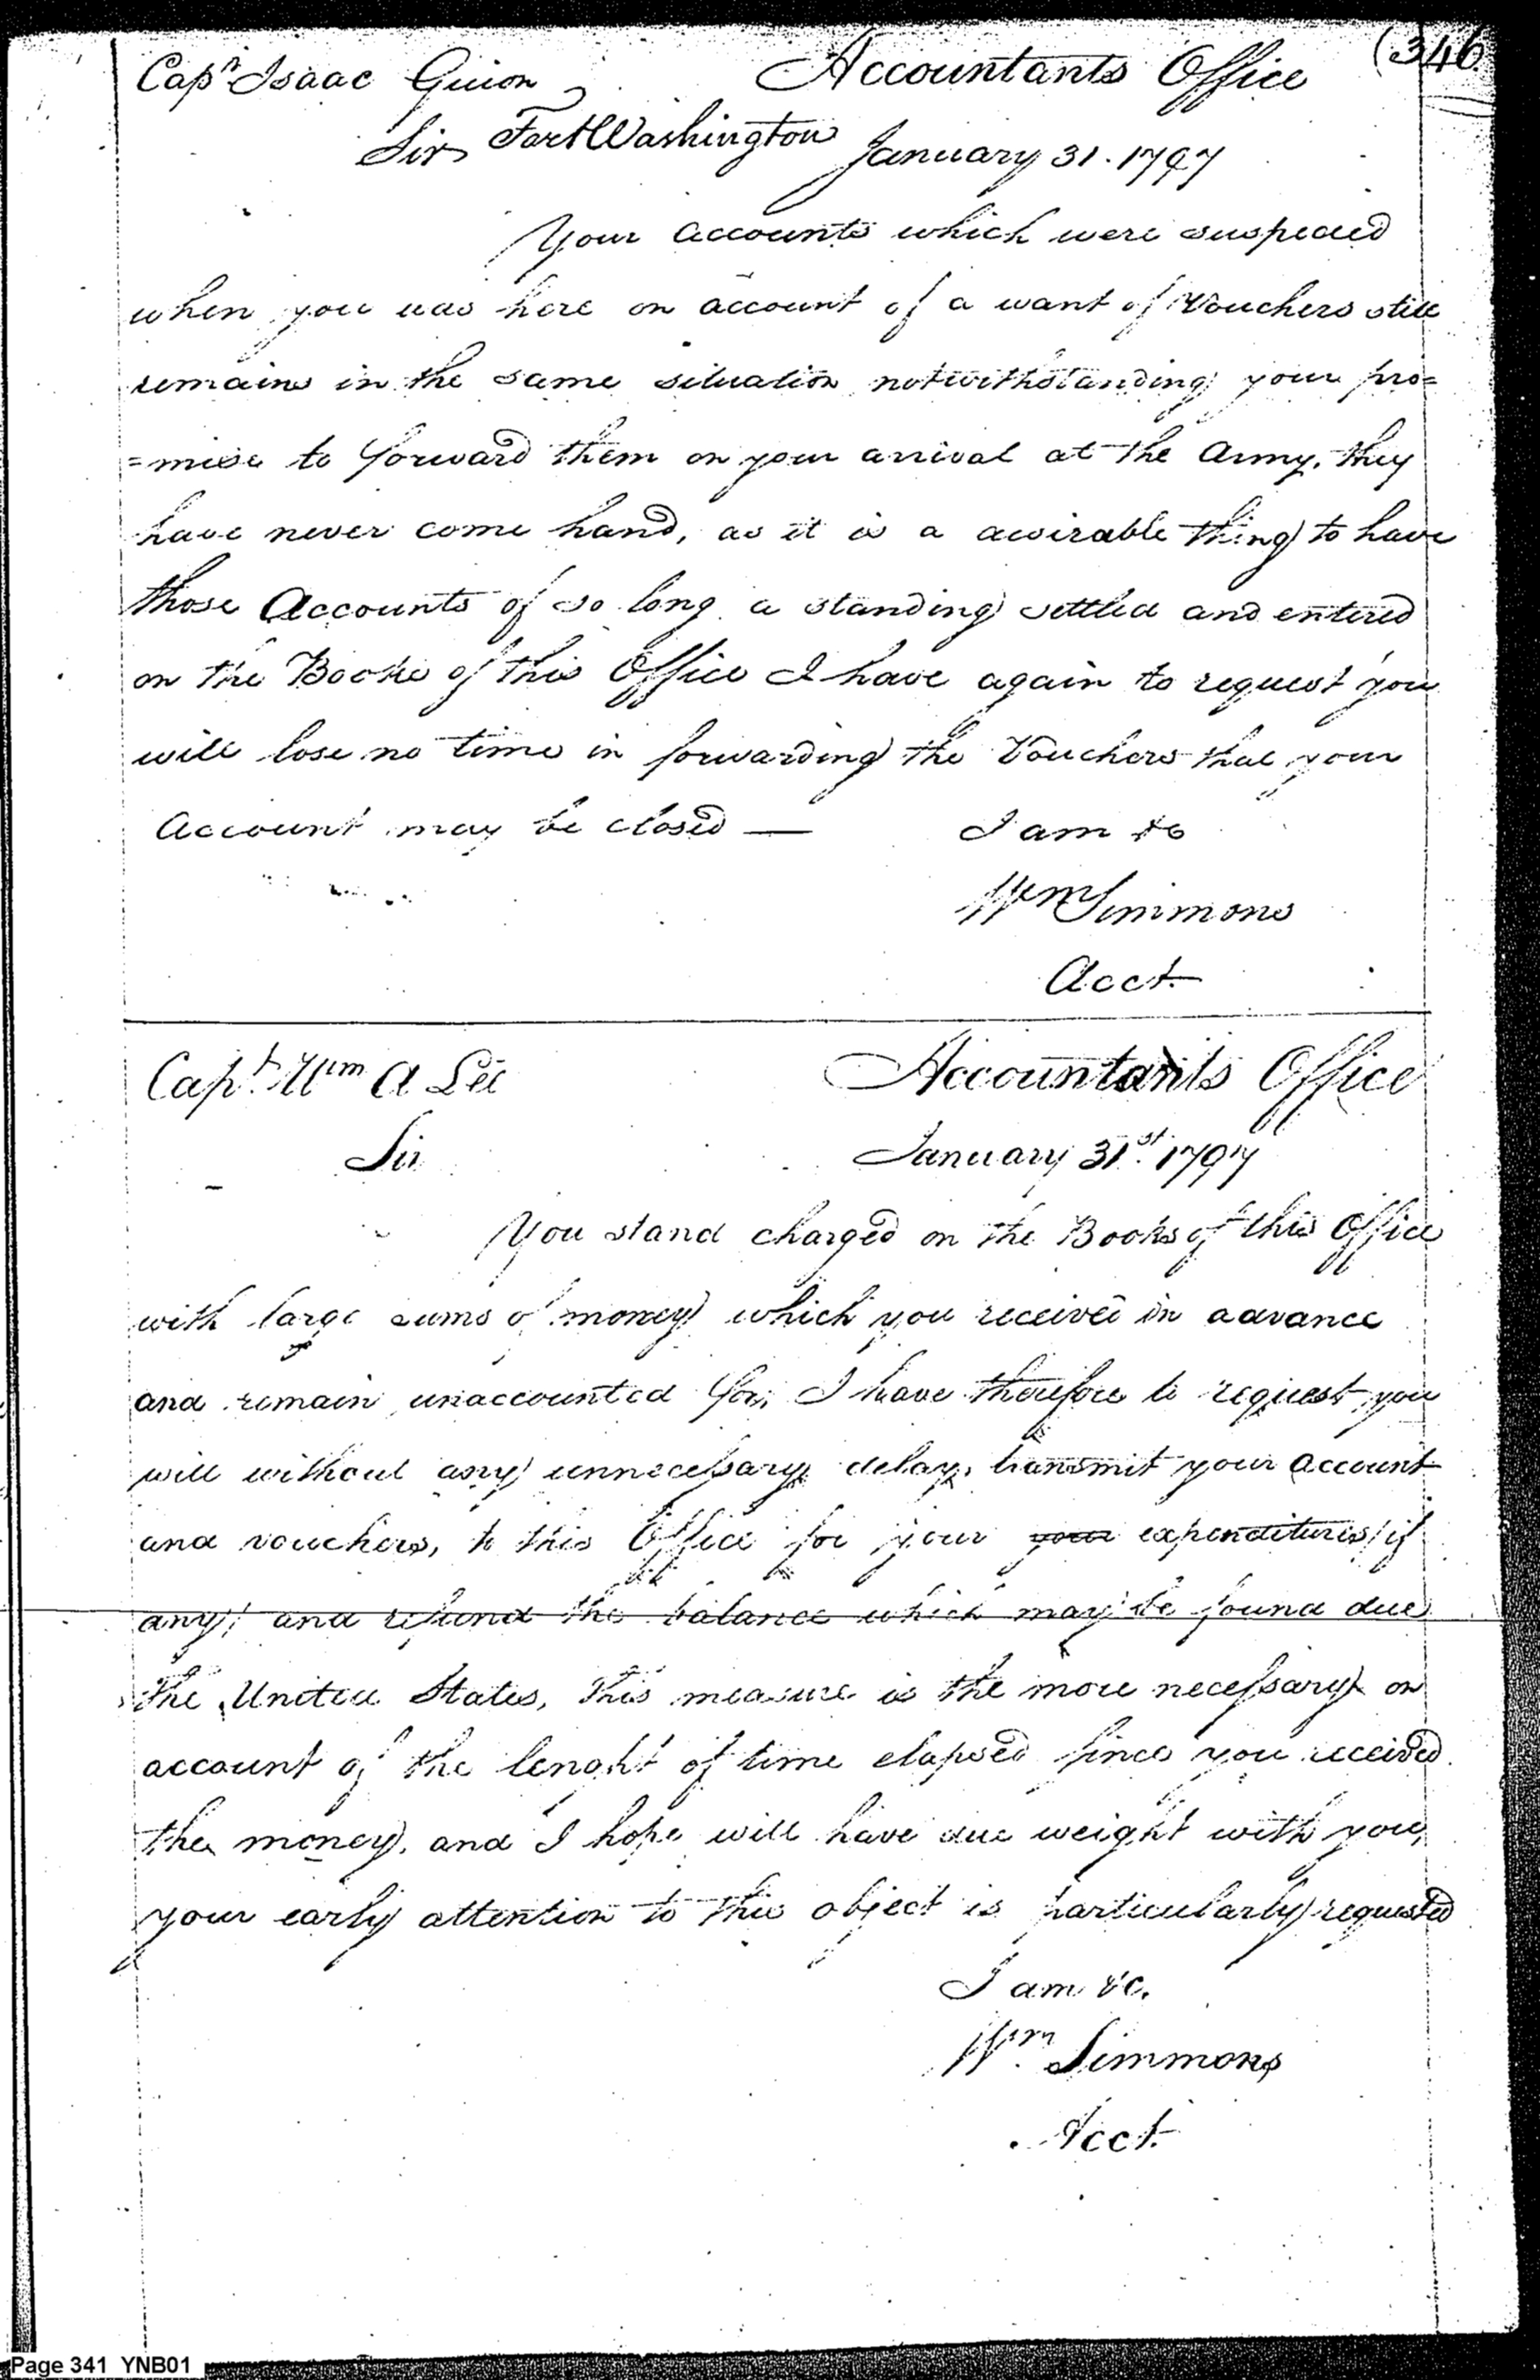 (346
Capn Isaac Guion Accountants Office
Sir Fort Washington January 31. 1797
Your accounts which were suspended
when you was here on account of a want of Vouchers still
remains in the same situation notwithstanding your pro=
=mise to forward them on your arrival at the Army, they
have never come hand, as it is a desirable thing to have
those Accounts of so long a standing settled and entered
on the Books of this Office I have again to request you
will lose no time in forwarding the Vouchers that your
Account may be closed —
I am &c
Wm Simmons
Acct.
Capt. Wm A Lee Accountants Office
Sir January 31st. 1797
You stand charged on the Books of this Office
with large sums of money which you received in advance
and remain unaccounted for, I have therefore to request you
will without any unnecessary delay, transmit your account
and vouchers, to this Office for your your expenditures/if
any/ and refund the balance which may be found due
the United States, This measure is the more necessary on
account of the lenght of time elapsed since you received
the money, and I hope will have due weight with you,
your early attention to this object is particularly requested
I am &c.
Wm. Simmons
Acct.
Page 341 YNB01